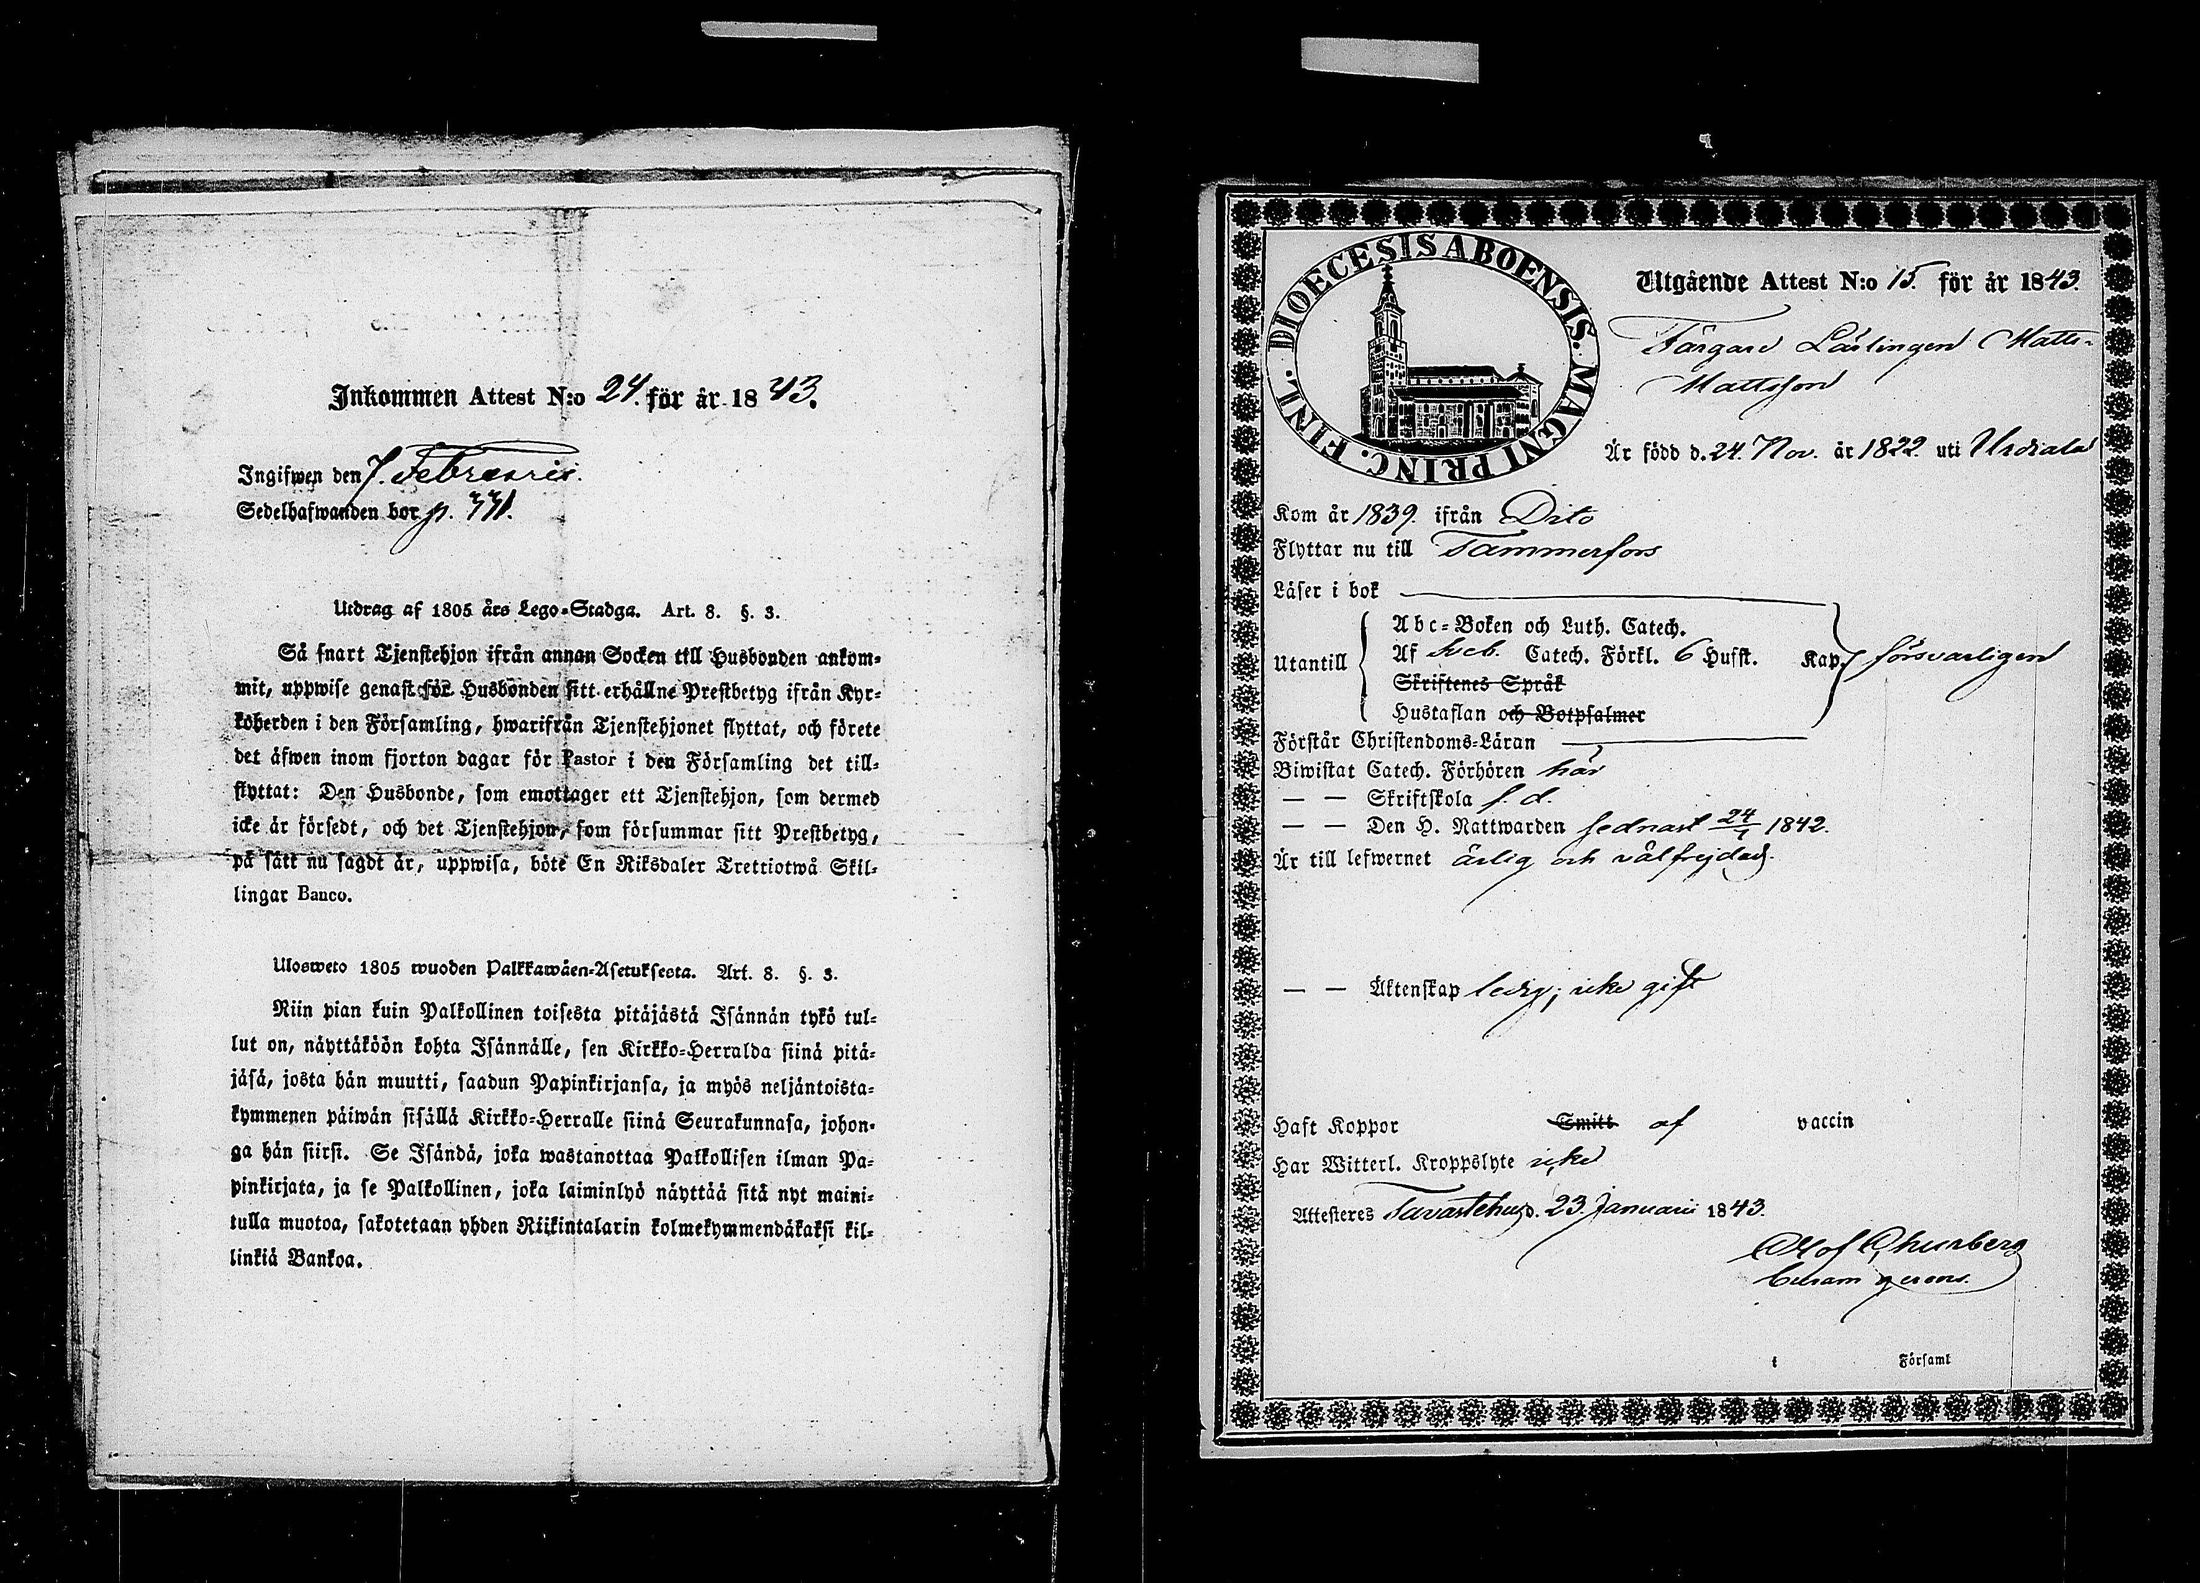 Inkommen Attest N:o 24. för år 1843.
Ingifwen den 7. Februarii.
Sedelhafwanden bor p. 331.
Utdrag af 1805 års Lego-Stadga. Art. 8. §. 3.
Så snart Tjenstehjon ifrån annan Socken till Husbonden ankom-
mit, uppwise genast för Husbonden sitt erhållne Prestbetyg ifrån Kyr-
koherden i den Församling, hwarifrån Tjenstehjonet flyttat, och förete
det äfwen inom fjorton dagar för Pastor i den Församling det till-
flyttat: Den Husbonde, som emottager ett Tjenstehjon, som dermed
icke är försedt, och det Tjenstehjon, som försummar sitt Prestbetyg,
på sätt nu sagdt är, uppwisa, böte En Riksdaler Trettiotwå Skil-
lingar Banco.
Ulosweto 1805 wuoden Palkkawäen-Asetuksesta. Art. 8. §. 3.
Niin pian kuin Palkollinen toisesta pitäjästä Isännän tykö tul-
lut on, näyttäköön kohta Isännälle, sen Kirkko-Herralda siinä pitä-
jäsä, josta hän muutti, saadun Papinkirjansa, ja myös neljäntoista-
kymmenen päiwän sisällä Kirkko-Herralle siinä Seurakunnasa, johon-
ga hän siirsi. Se Isändä, joka wastanottaa Palkollisen ilman Pa-
pinkirjata, ja se Palkollinen, joka laiminlyö näyttää sitä nyt maini-
tulla muotoa, sakotetaan yhden Riikintalarin kolmekymmendäkaksi kil-
linkiä Bankoa.
DIOECESIS ABOENSIS. MAGNI PRINC. FINL.
Utgående Attest N:o 15. för år 1843.
Färgare Lärlingen Matts
Mattsson
Är född d. 24. Nov. år 1822 uti Urdiala
Kom år 1839. ifrån Dito
Flyttar nu till Tammerfors
Läser i bok
Utantill
Abc-Boken och Luth. Catech.
Af Sveb. Catech. Förkl. 6 Hufst. Kap. försvarligen
Skriftenes Språk
Hustaflan och Botpsalmer
Förstår Christendoms-Läran
Biwistat Catech. Förhören här
— — Skriftskola f. d.
— — Den H. Nattwarden sednast 24/7 1842.
Är till lefwernet ärlig och välfrejdad.
— — Äktenskap ledig; icke gift
Haft Koppor Smitt af vaccin
Har Witterl. Kroppslyte icke
Attesteres Tavastehus d. 23. Januarii 1843.
Olof Churberg
Curam gerens.
i Församl